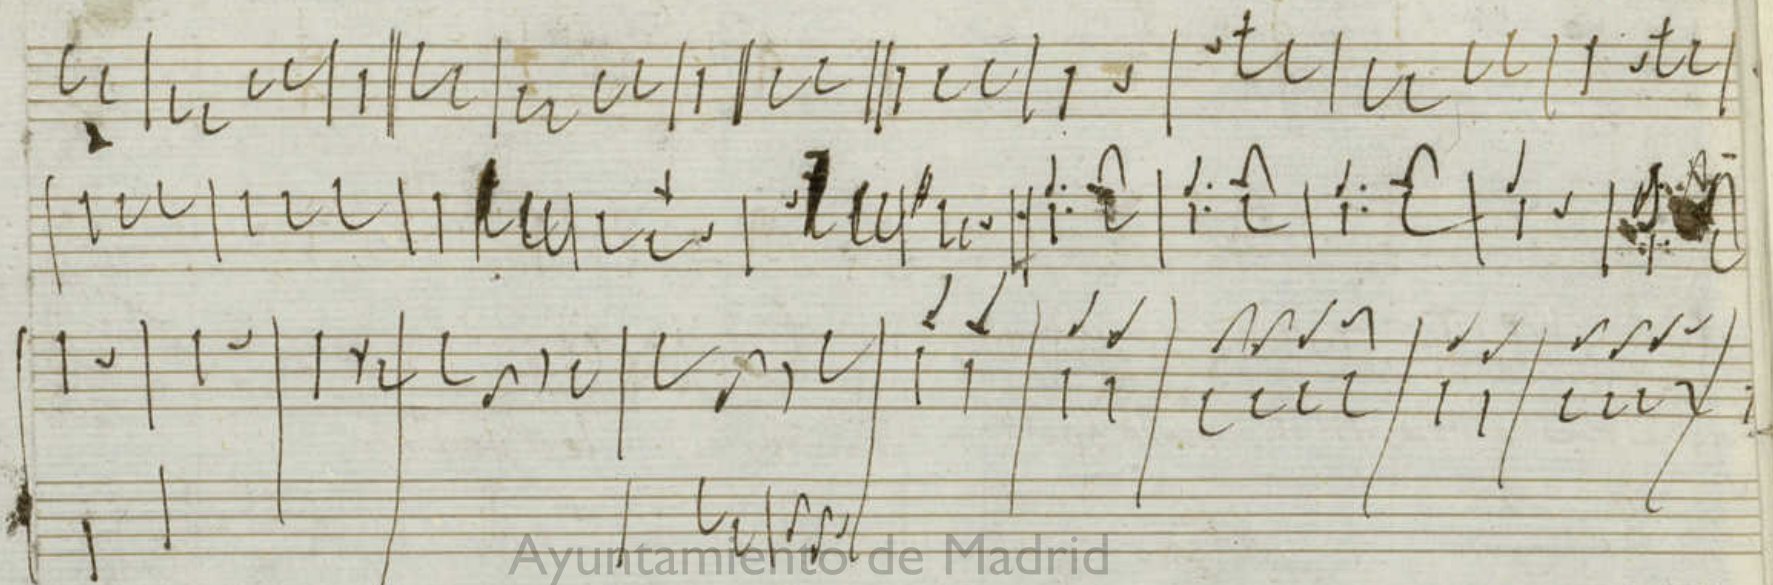 Ayuntamiento de Madrid